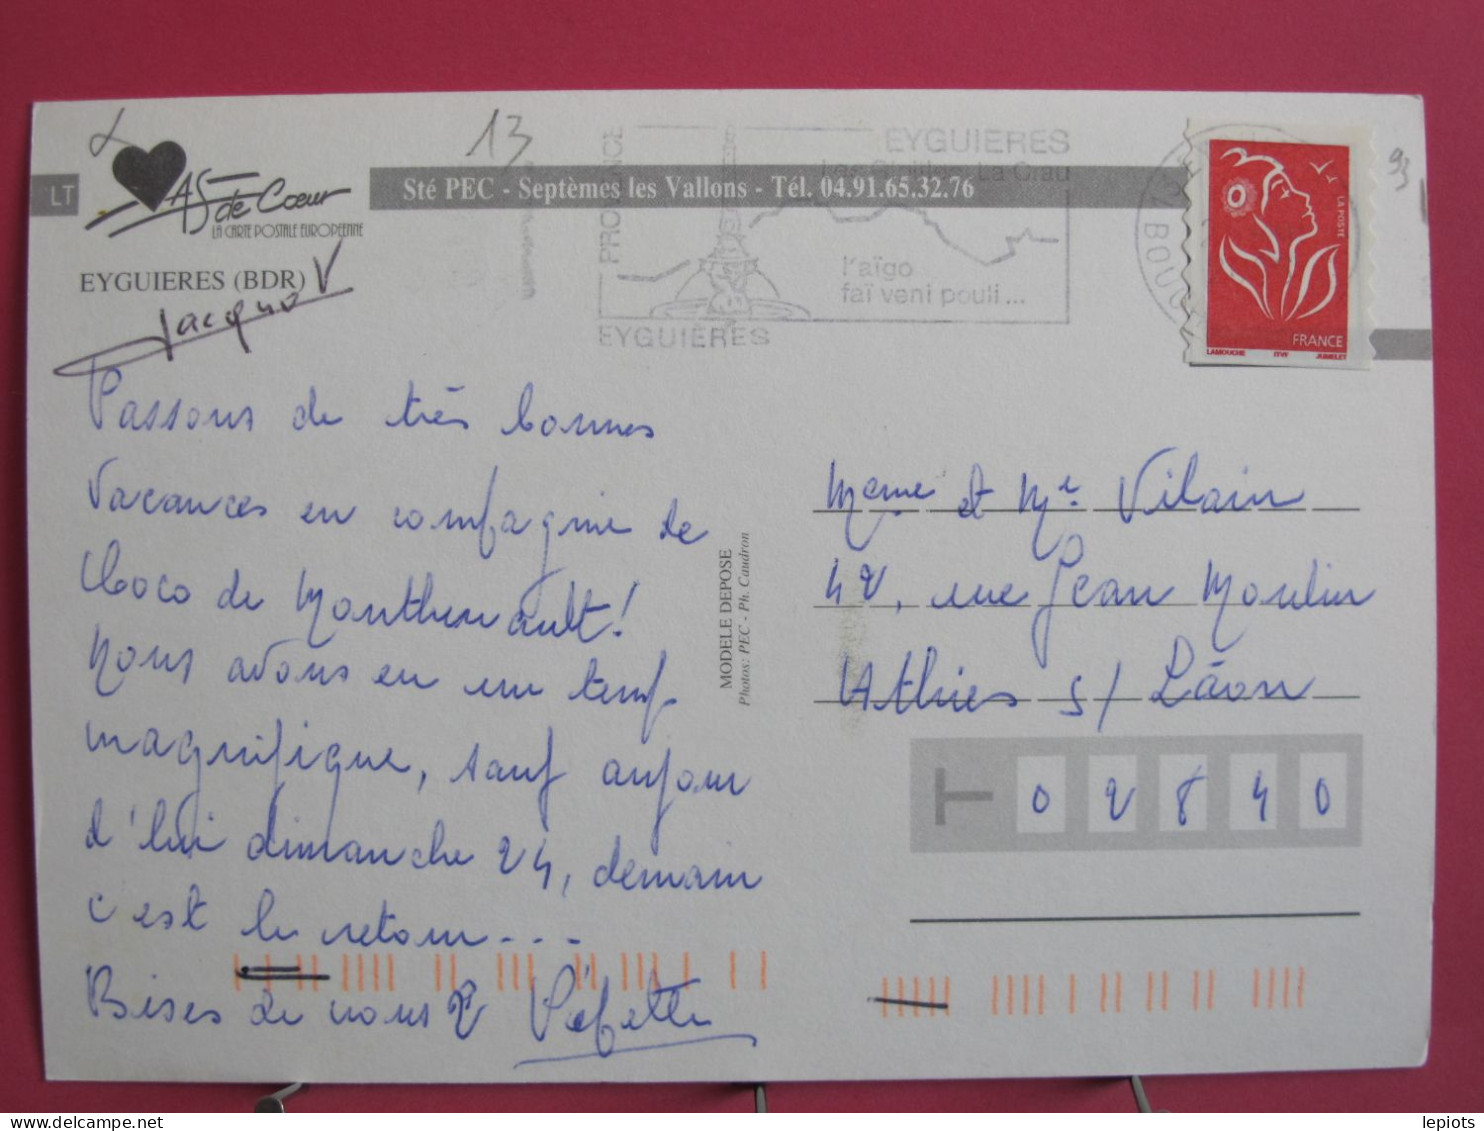 13
93
LT
AS de Cœur
LA CARTE POSTALE EUROPEENNE
Sté PEC - Septèmes les Vallons - Tél. 04.91.65.32.76
EYGUIERES (BDR)
Jacquo
PROVENCE
EYGUIERES
La Crau
l'aïgo
faï veni pouli...
EYGUIÈRES
LA POSTE
FRANCE
LAMOUCHE ITVF JUMELET
Passons de très bonnes
vacances en compagnie de
Choco de Monthenault!
Nous avons eu un temps
magnifique, sauf aujour
d'hui dimanche 24, demain
c'est le retour---
Bises de nous 2 Pépette
MODELE DEPOSE
Photos: PEC - Ph. Caudron
Meme et Mr Vilain
42, rue Jean Moulin
Athies s/ Lâon
02840
lepiots